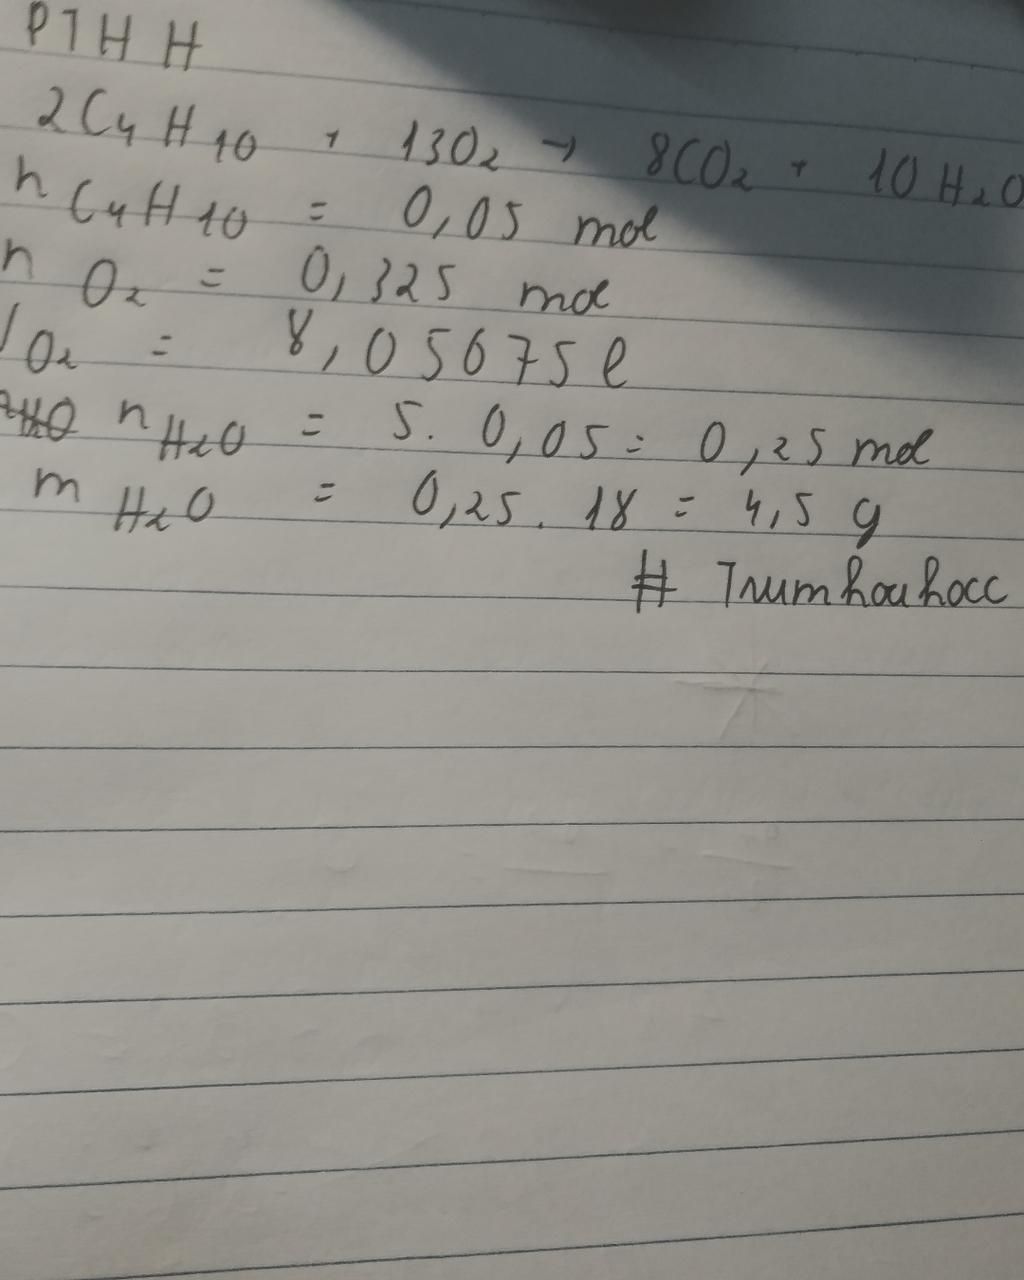 PTHH
2C₄H₁₀ + 13O₂ → 8CO₂ + 10H₂O
n C₄H₁₀ = 0,05 mol
n O₂ = 0,325 mol
V O₂ = 8,05675 l
n H₂O = 5. 0,05 = 0,25 mol
m H₂O = 0,25. 18 = 4,5 g
# Trumhouhocc